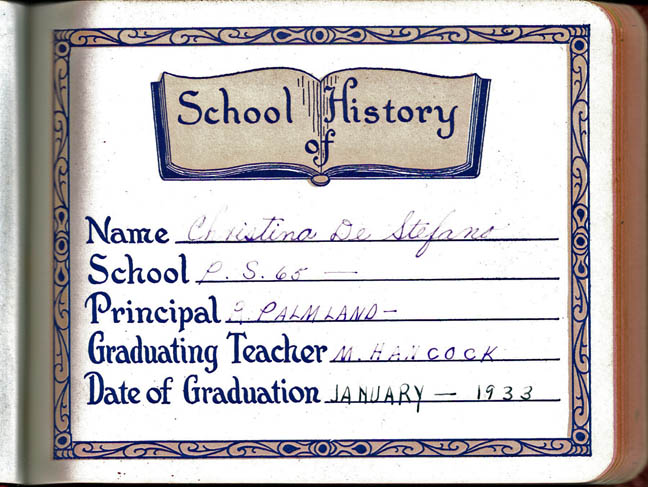 School History
of
Name Christina De Stefano
School P. S. 65 —
Principal PALMLAND —
Graduating Teacher M. HANCOCK
Date of Graduation JANUARY — 1933